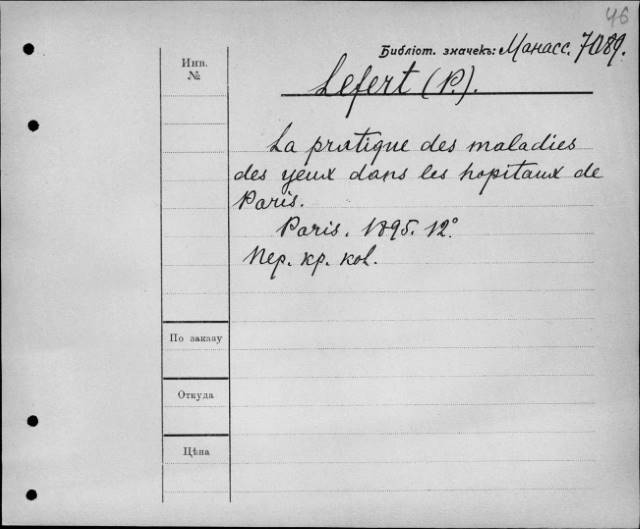 46
Библіот. значекъ: Манасс. 7089.
Инв.
№
Lefert (P).
La pratique des maladies
des yeux dans les hopitaux de
Paris.
Paris. 1895. 12°
Пер. кр. кож.
По заказу
Откуда
Цѣна